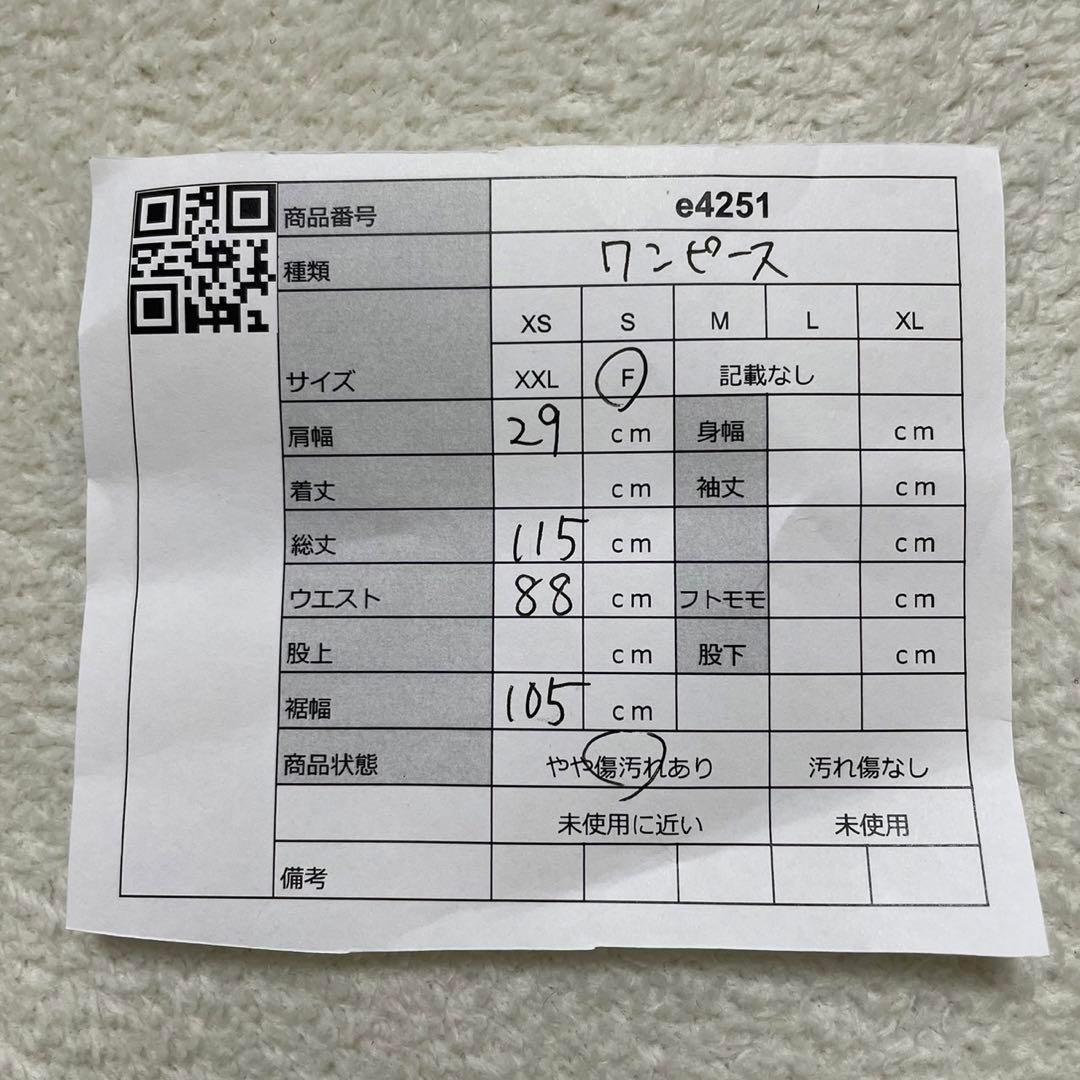 商品番号 e4251
種類 ワンピース
XS S M L XL
サイズ XXL F 記載なし
肩幅 29 cm 身幅 cm
着丈 cm 袖丈 cm
総丈 115 cm cm
ウエスト 88 cm フトモモ cm
股上 cm 股下 cm
裾幅 105 cm
商品状態 やや傷汚れあり 汚れ傷なし
未使用に近い 未使用
備考